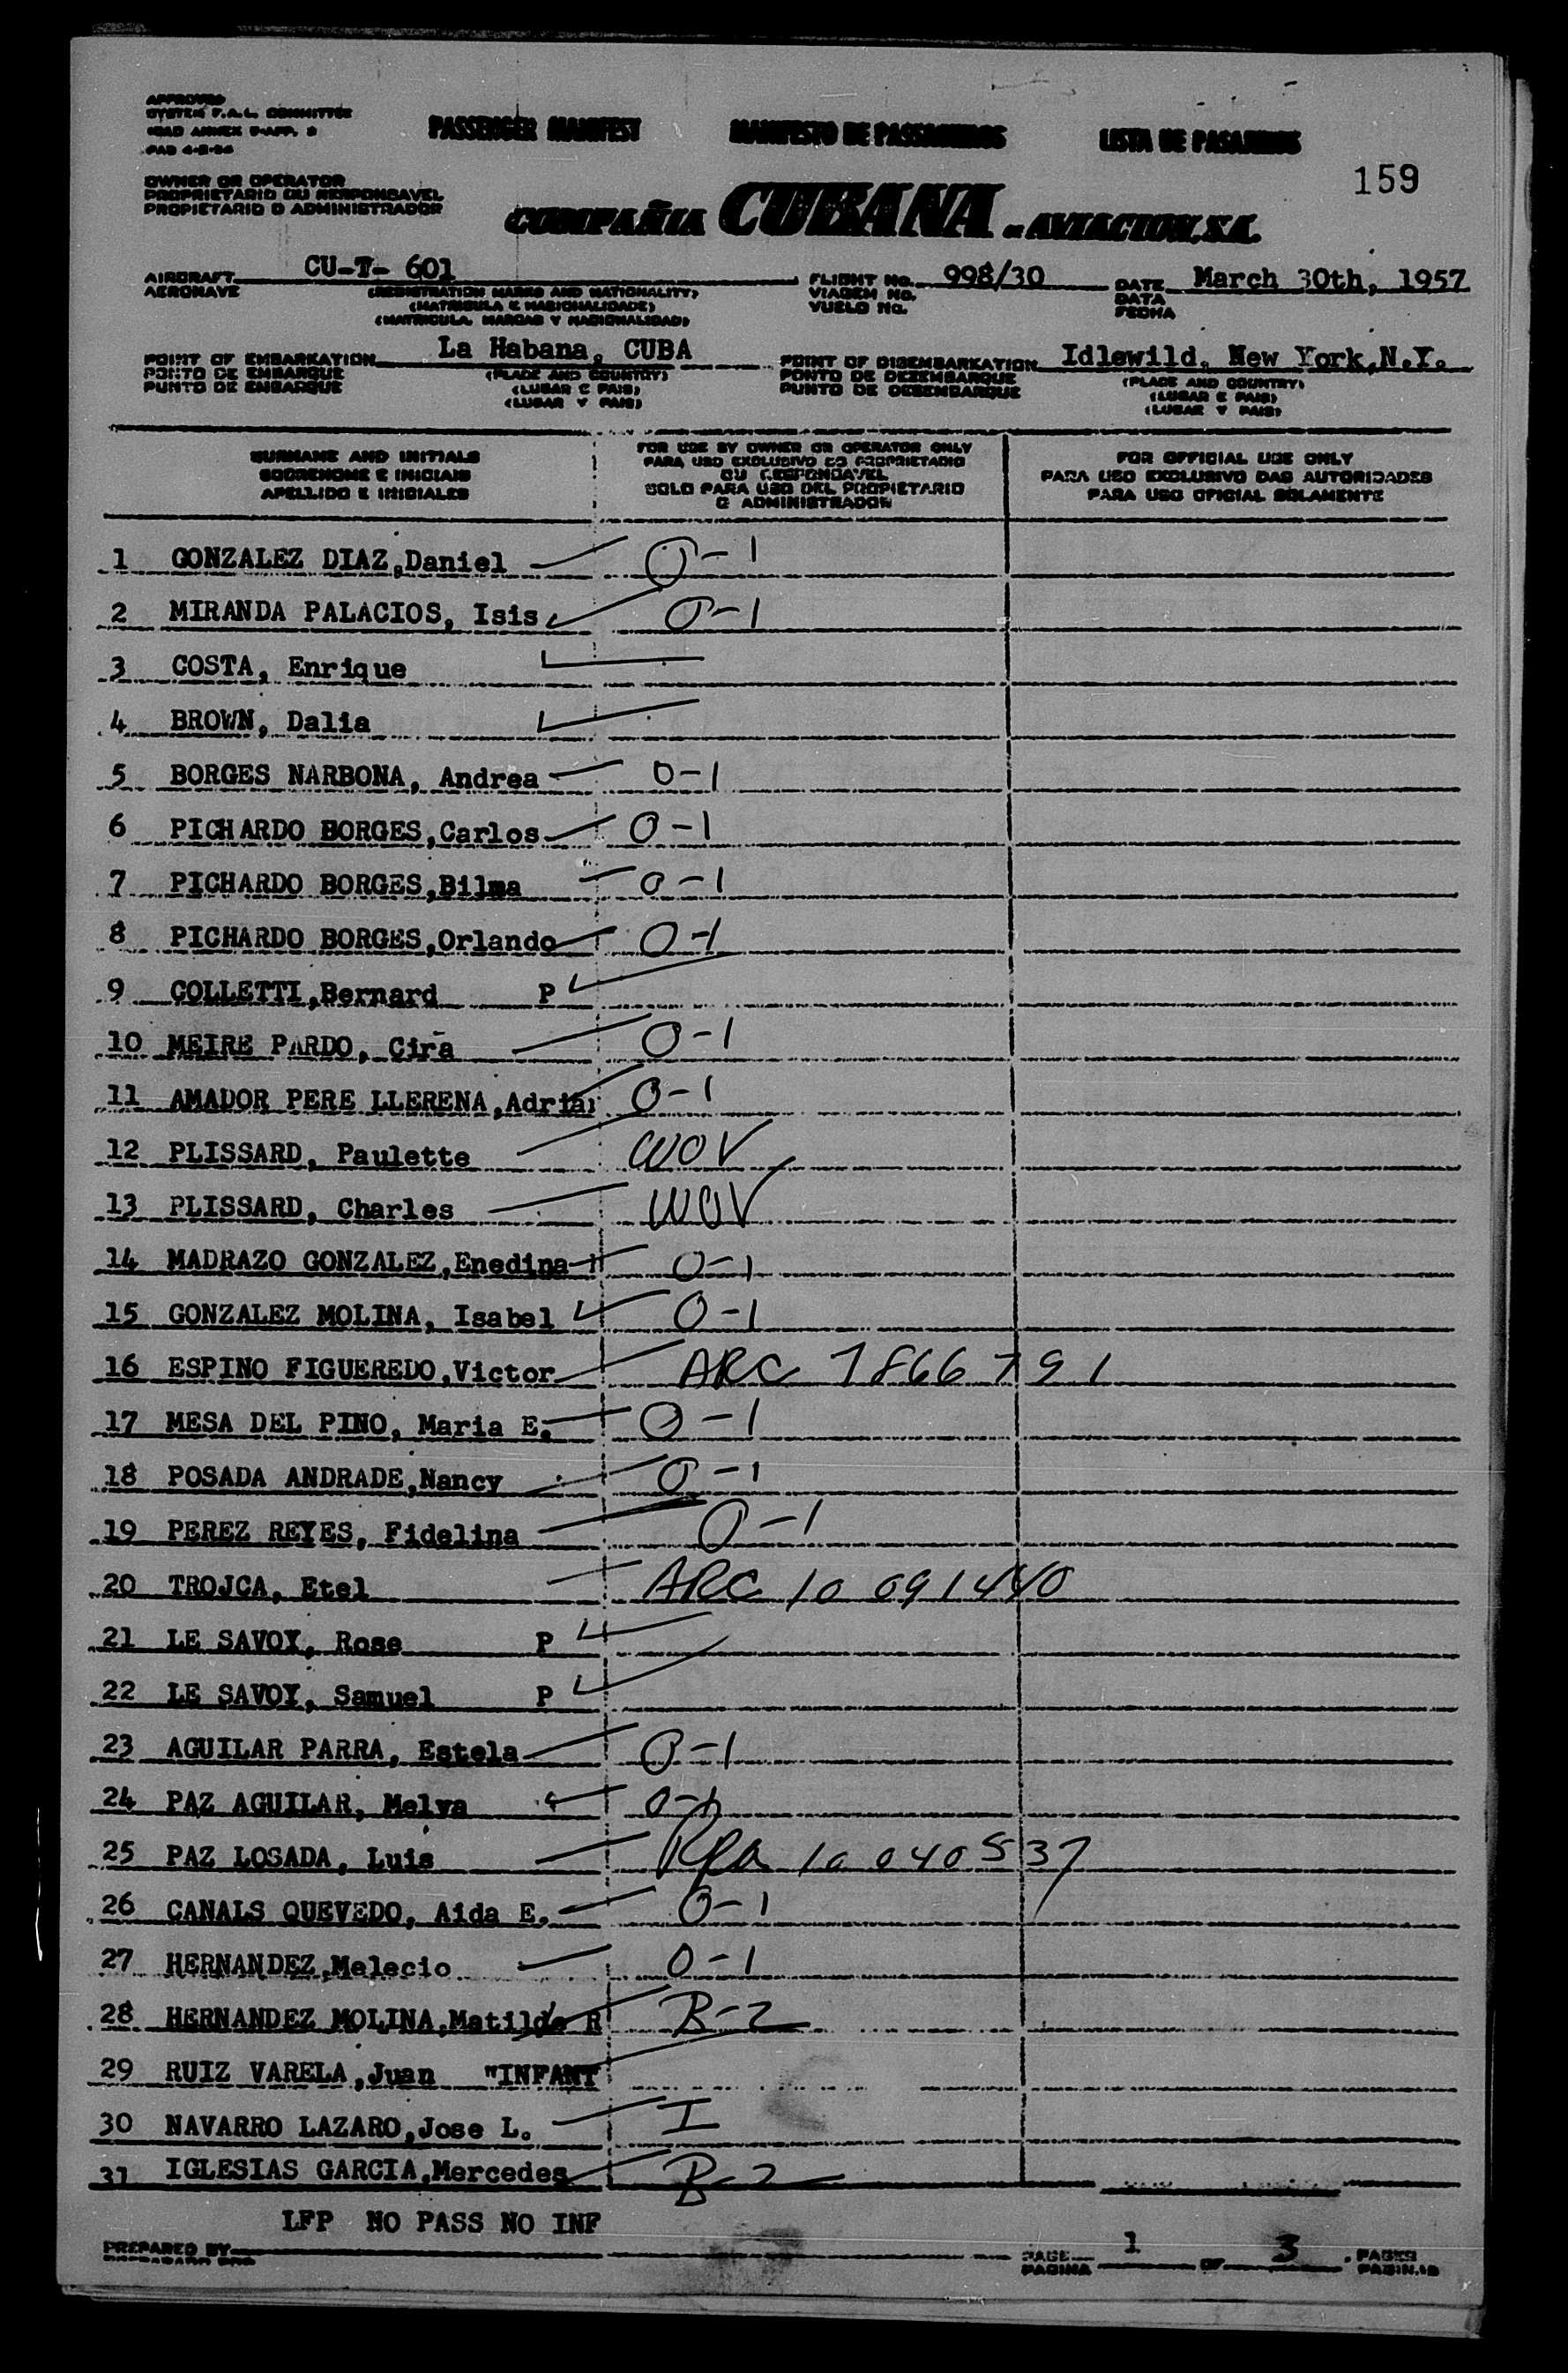 APPROVED
SYSTEM F.A.L. COMMITTEE
ICAO ANNEX 9-APP. 3
PAD 4-2-56
PASSENGER MANIFEST MANIFESTO DE PASSAGEIROS LISTA DE PASAJEROS
159
OWNER OR OPERATOR
PROPRIETARIO OU RESPONSAVEL
PROPIETARIO O ADMINISTRADOR
COMPAÑIA CUBANA DE AVIACION, S.A.
AIRCRAFT CU-T- 601 FLIGHT No. 998/30 DATE March 30th, 1957
AERONAVE (REGISTRATION MARKS AND NATIONALITY) VIAGEM No. DATA
(MATRICULA E NACIONALIDADE) VUELO No. FECHA
(MATRICULA, MARCAS Y NACIONALIDAD)
POINT OF EMBARKATION La Habana, CUBA POINT OF DISEMBARKATION Idlewild. New York,N.Y.
PONTO DE EMBARQUE (PLACE AND COUNTRY) PONTO DE DESEMBARQUE (PLACE AND COUNTRY)
PUNTO DE EMBARQUE (LUGAR E PAIS) PUNTO DE DESEMBARQUE (LUGAR E PAIS)
(LUGAR Y PAIS) (LUGAR Y PAIS)
SURNAME AND INITIALS FOR USE BY OWNER OR OPERATOR ONLY FOR OFFICIAL USE ONLY
SOBRENOME E INICIAIS PARA USO EXCLUSIVO DO PROPRIETARIO PARA USO EXCLUSIVO DAS AUTORIDADES
OU RESPONSAVEL
APELLIDO E INICIALES SOLO PARA USO DEL PROPIETARIO PARA USO OFICIAL SOLAMENTE
O ADMINISTRADOR
1 GONZALEZ DIAZ,Daniel O-1
2 MIRANDA PALACIOS, Isis O-1
3 COSTA, Enrique
4 BROWN, Dalia
5 BORGES NARBONA, Andrea O-1
6 PICHARDO BORGES,Carlos O-1
7 PICHARDO BORGES,Bilma O-1
8 PICHARDO BORGES,Orlando O-1
9 COLLETTI,Bernard P
10 MEIRE PARDO, Cira O-1
11 AMADOR PERE LLERENA,Adria O-1
12 PLISSARD, Paulette WOV
13 PLISSARD, Charles WOV
14 MADRAZO GONZALEZ,Enedina O-1
15 GONZALEZ MOLINA, Isabel O-1
16 ESPINO FIGUEREDO,Victor ARC 7866791
17 MESA DEL PINO, Maria E. O-1
18 POSADA ANDRADE,Nancy O-1
19 PEREZ REYES, Fidelina O-1
20 TROJCA, Etel ARC 10 091440
21 LE SAVOY, Rose P
22 LE SAVOY, Samuel P
23 AGUILAR PARRA, Estela O-1
24 PAZ AGUILAR, Melva O-1
25 PAZ LOSADA, Luis 10 040537
26 CANALS QUEVEDO, Aida E. O-1
27 HERNANDEZ,Melecio O-1
28 HERNANDEZ MOLINA,Matilde R B-2
29 RUIZ VARELA,Juan "INFANT
30 NAVARRO LAZARO,Jose L. I
31 IGLESIAS GARCIA,Mercedes B-2
LFP NO PASS NO INF
PREPARED BY PAGE 1 OF 3 PAGES
PREPARADO POR PAGINA PAGINAS